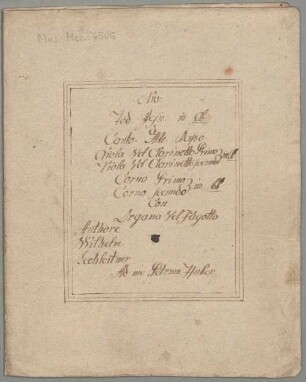 Mus. Mss. 6506
No:
Tod in Eb
Canto, Alto Basso
Viola Vel Clarinetto Primo
Viola Vel Clarinetto secundo in B
Corno Primo
Corno secundo in Eb
Con
Organo Vel Fagotto
Authore
Wilhelm
Ad me Petrum Huber